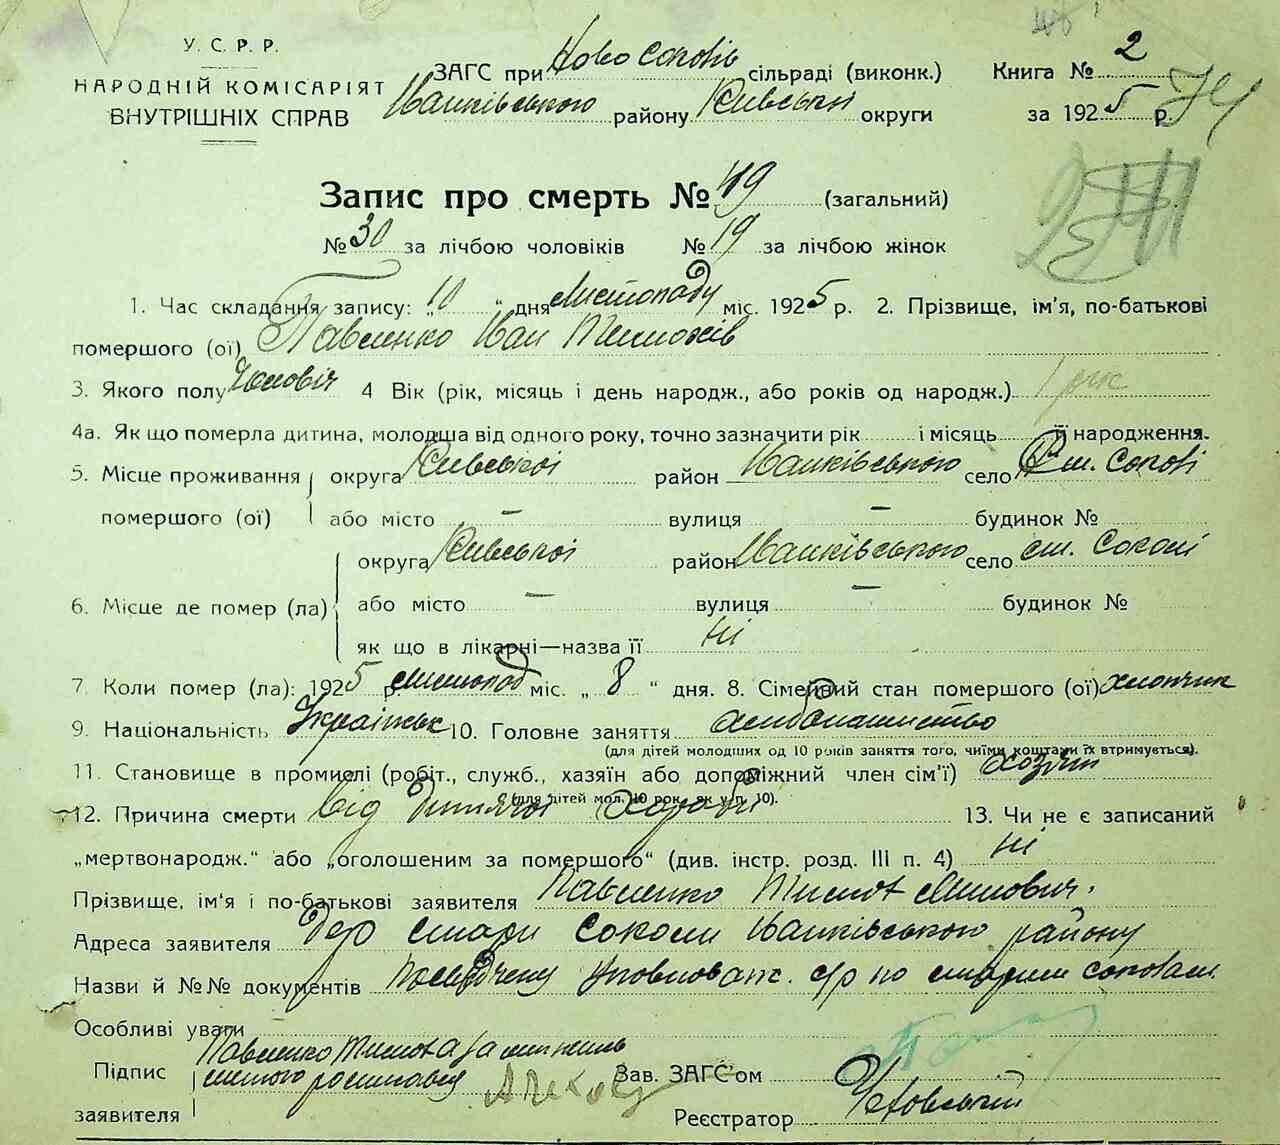 У. С. Р. Р.
НАРОДНІЙ КОМІСАРІЯТ
ВНУТРІШНІХ СПРАВ
ЗАГС при Ново Соколів сільраді (виконк.) Книга № 2
Іванківського району Київської округи за 1925 р.
Запис про смерть № 49 (загальний)
№ 30 за лічбою чоловіків № 19 за лічбою жінок
1. Час складання запису: „10 “ дня Листопаду міс. 1925 р. 2. Прізвище, ім'я, по-батькові
помершого (ої) Павленко Іван Тимохів
3. Якого полу Чоловіч 4 Вік (рік, місяць і день народж., або років од народж.) 1 рік
4а. Як що померла дитина, молодша від одного року, точно зазначити рік і місяць її народження.
5. Місце проживання округа Київської район Іванківського село Ст. Соколі
помершого (ої) або місто — вулиця — будинок №
округа Київської район Іванківського село ст. Соколі
6. Місце де помер (ла) або місто — вулиця — будинок №
як що в лікарні—назва її Ні
7. Коли помер (ла): 1925 р Листопад міс. „ 8 “ дня. 8. Сімейний стан помершого (ої) хлопчик
9. Національність Українськ 10. Головне заняття
(для дітей молодших од 10 років заняття того, чиїми коштами їх втримується).
11. Становище в промислі (робіт., служб., хазяїн або допоміжний член сім'ї) хозяін
(для дітей мол. 10 рок. як у п. 10).
12. Причина смерти Від дитячої хороби 13. Чи не є записаний
„мертвонародж.“ або „оголошеним за помершого“ (див. інстр. розд. III п. 4) Ні
Прізвище, ім'я і по-батькові заявителя Павленко Тимох
Адреса заявителя Дер Стари Соколи Іванківського району
Назви й №№ документів Посвідчену Уповноваж. с/р по старим соколам
Особливі уваги
Підпис Павленко Тимоха за
заявителя росписався
Зав. ЗАГС'ом
Реєстратор